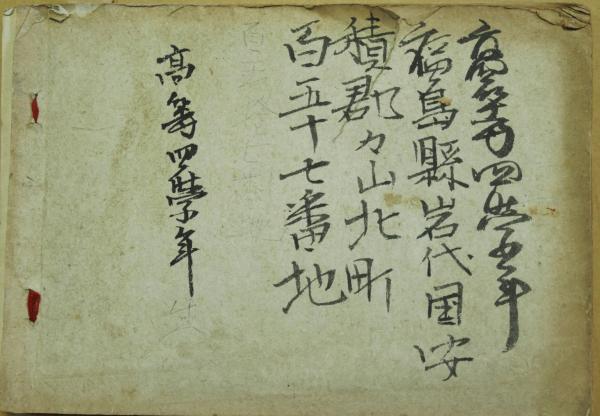 高等四學年
福島縣岩代国安
積郡々山北町
百五十七番地
高等四學年